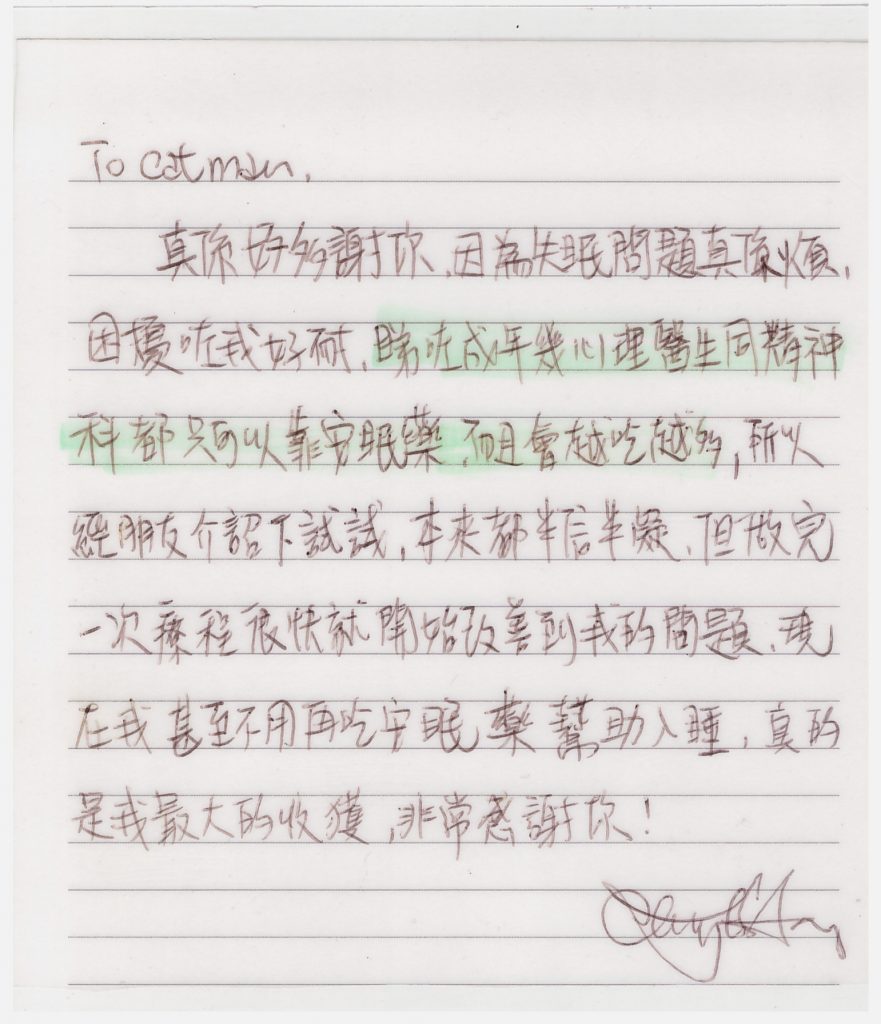 To Catman,
真係好多謝你,因為失眠問題真係煩,
困擾咗我好耐,睇咗成年幾心理醫生同精神
科都只可以靠安眠藥,而且會越吃越多,所以
經朋友介紹下試試,本來都半信半凝,但做完
一次療程很快就開始改善到我的問題,現
在我甚至不用再吃安眠藥幫助入睡,真的
是我最大的收獲,非常感謝你!